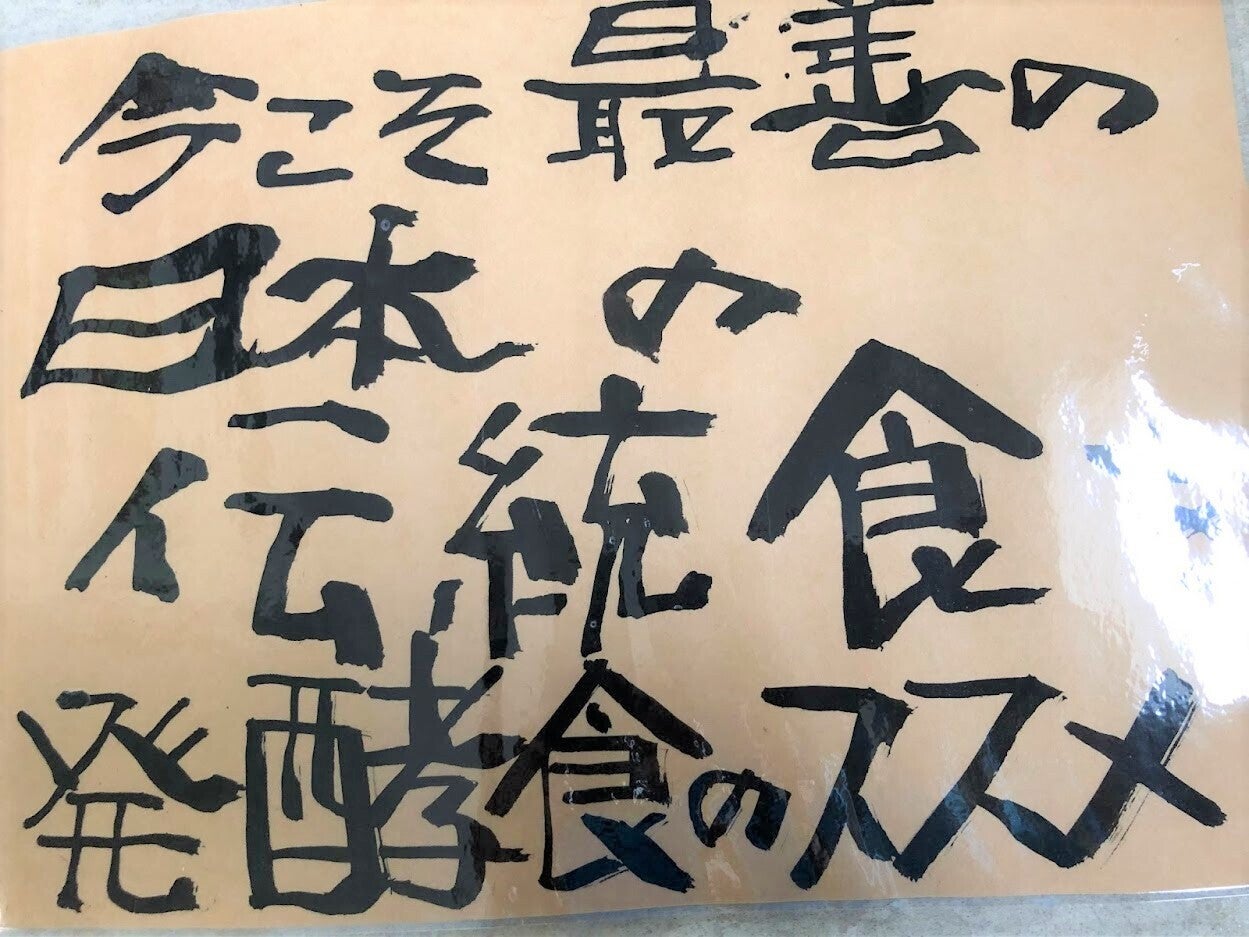 今こそ最善の
日本の
伝統食
発酵食のススメ